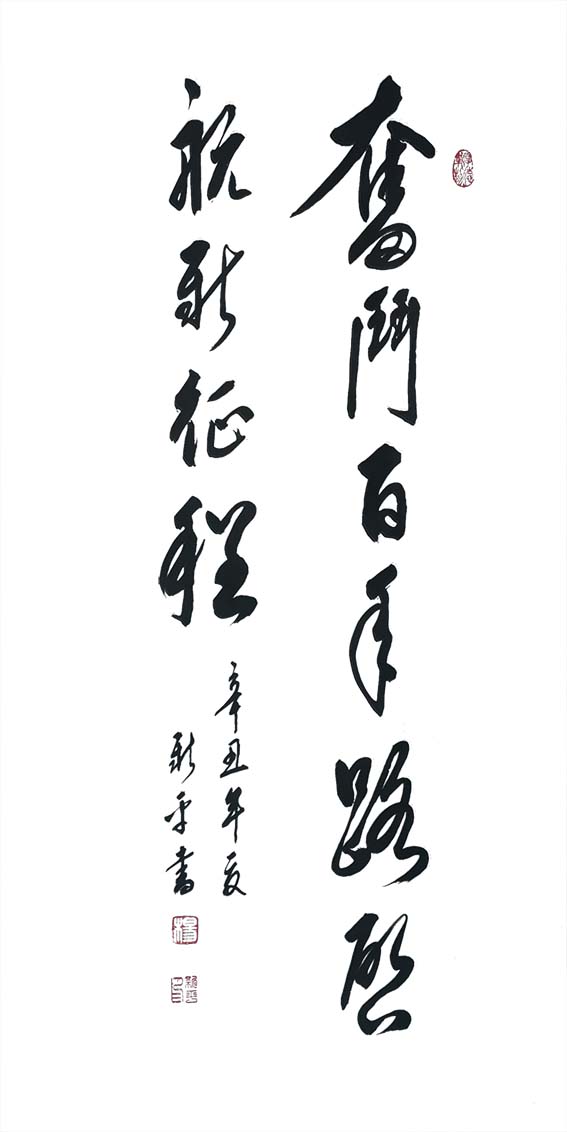 奮鬥百年路啓
航新征程
辛丑年夏
新平書